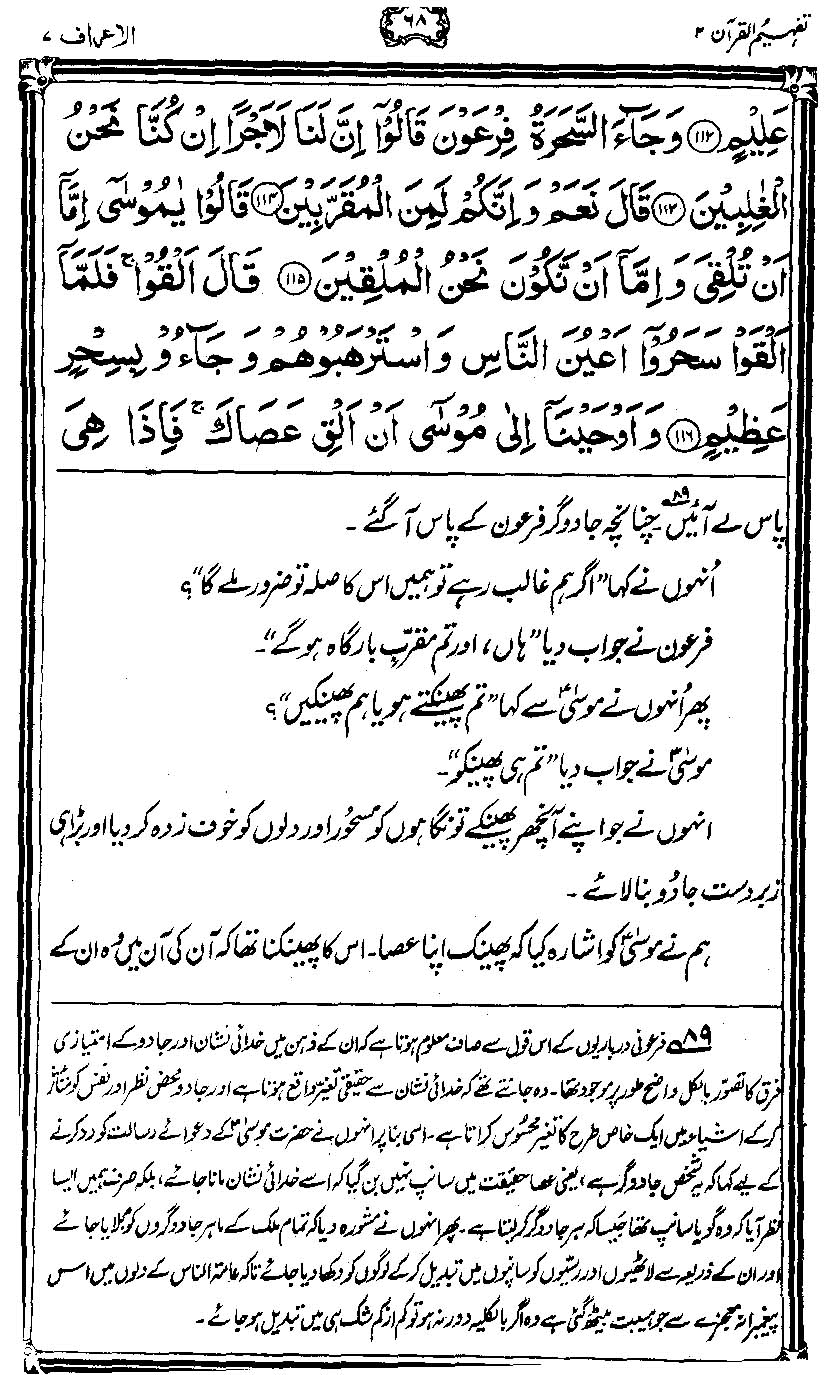 تفہیم القرآن ۲
۶۸
الاعراف ۷
عَلِيْمٍ ﴿۱۱۲﴾ وَجَآءَ السَّحَرَةُ فِرْعَوْنَ قَالُوْۤا اِنَّ لَنَا لَاَجْرًا اِنْ كُنَّا نَحْنُ
الْغٰلِبِيْنَ ﴿۱۱۳﴾ قَالَ نَعَمْ وَاِنَّكُمْ لَمِنَ الْمُقَرَّبِيْنَ ﴿۱۱۴﴾ قَالُوْا يٰمُوْسٰۤى اِمَّاۤ
اَنْ تُلْقِيَ وَاِمَّاۤ اَنْ نَّكُوْنَ نَحْنُ الْمُلْقِيْنَ ﴿۱۱۵﴾ قَالَ اَلْقُوْا ۚ فَلَمَّاۤ
اَلْقَوْا سَحَرُوْۤا اَعْيُنَ النَّاسِ وَاسْتَرْهَبُوْهُمْ وَجَآءُوْ بِسِحْرٍ
عَظِيْمٍ ﴿۱۱۶﴾ وَاَوْحَيْنَاۤ اِلٰى مُوْسٰۤى اَنْ اَلْقِ عَصَاكَ ۚ فَاِذَا هِيَ
پاس لے آئیں ۸۹۔ چنانچہ جادوگر فرعون کے پاس آ گئے۔
اُنہوں نے کہا ”اگر ہم غالب رہے تو ہمیں اس کا صلہ تو ضرور ملے گا“؟
فرعون نے جواب دیا ”ہاں، اور تم مقربِ بارگاہ ہو گے“۔
پھر اُنہوں نے موسٰیؑ سے کہا ”تم پھینکتے ہو یا ہم پھینکیں“؟
موسٰیؑ نے جواب دیا ”تم ہی پھینکو“۔
انہوں نے جو اپنے آنچھر پھینکے تو نگاہوں کو مسحُور اور دلوں کو خوف زدہ کر دیا اور بڑا ہی
زبردست جادُو بنا لائے۔
ہم نے موسٰیؑ کو اشارہ کیا کہ پھینک اپنا عصا۔ اس کا پھینکنا تھا کہ آن کی آن میں وہ ان کے
۸۹ فرعونی درباریوں کے اس قول سے صاف معلوم ہوتا ہے کہ ان کے ذہن میں خدائی نشان اور جادو کے امتیازی
فرق کا تصوّر بالکل واضح طور پر موجود تھا۔ وہ جانتے تھے کہ خدائی نشان سے حقیقی تغیر واقع ہوتا ہے اور جادو محض نظر اور نفس کو متأثر
کر کے اشیاء میں ایک خاص طرح کا تغیر محسُوس کراتا ہے۔ اسی بنا پر انہوں نے حضرت موسٰیؑ کے دعوائے رسالت کو رد کرنے
کے لیے کہا کہ یہ شخص جادوگر ہے، یعنی عصا حقیقت میں سانپ نہیں بن گیا کہ اسے خدائی نشان مانا جائے، بلکہ صرف ہمیں ایسا
نظر آیا کہ وہ گویا سانپ تھا جیسا کہ ہر جادوگر کر لیتا ہے۔ پھر انہوں نے مشورہ دیا کہ تمام ملک کے ماہر جادوگروں کو بُلایا جائے
اور ان کے ذریعہ سے لاٹھیوں اور رسّیوں کو سانپوں میں تبدیل کر کے لوگوں کو دکھا دیا جائے تاکہ عامۃ الناس کے دلوں میں اس
پیغمبرانہ معجزے سے جو ہیبت بیٹھ گئی ہے وہ اگر بالکلیہ دور نہ ہو تو کم از کم شک ہی میں تبدیل ہو جائے۔